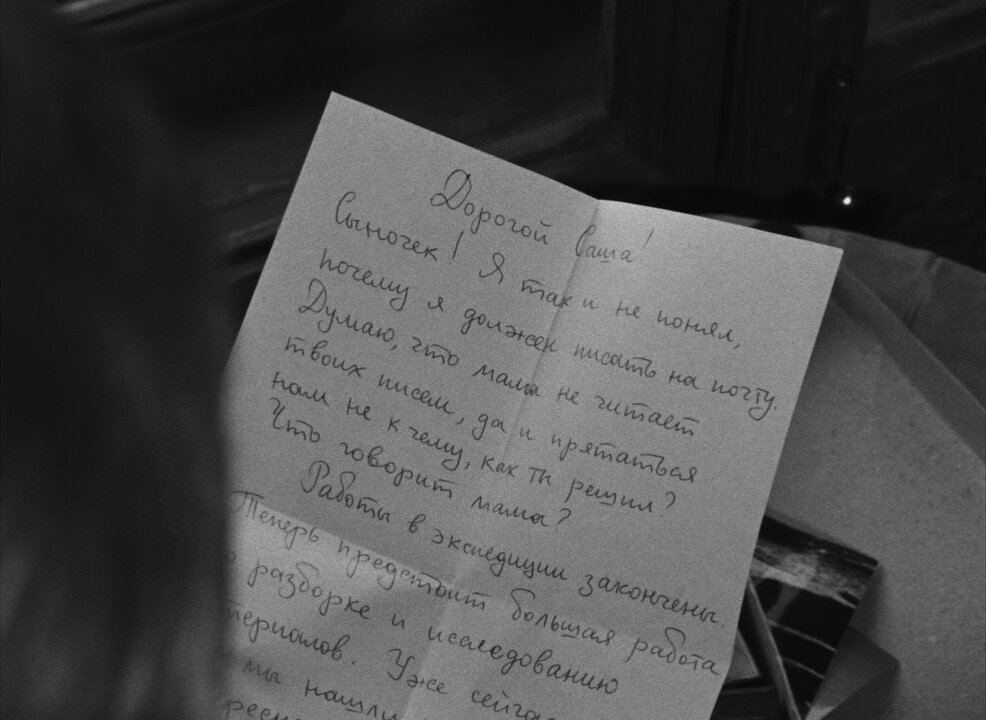 Дорогой Саша!
Сыночек! Я так и не понял,
почему я должен писать на почту.
Думаю, что мама не читает
твоих писем, да и прятаться
нам не к чему, как ты решил?
Что говорит мама?
Работы в экспедиции закончены.
Теперь предстоит большая работа
о разборке и исследованию
териалов. Уже сейчас
мы нашли
ресн